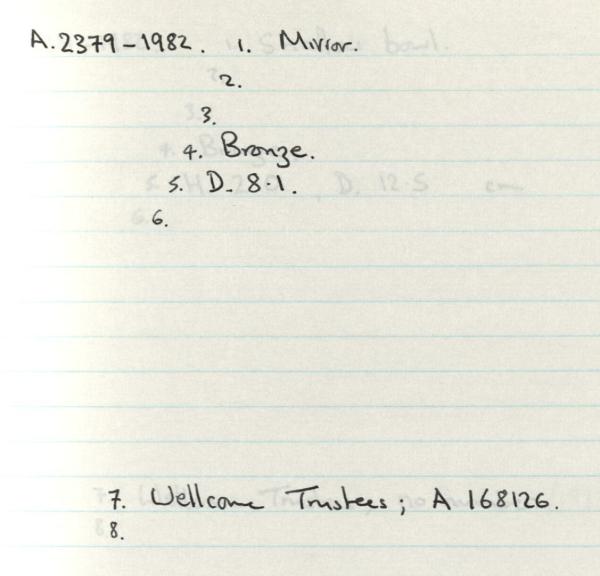 A.2379-1982. 1. Mirror.
2.
3.
4. Bronze.
5. D. 8.1.
6.
7. Wellcome Trustees; A 168126.
8.